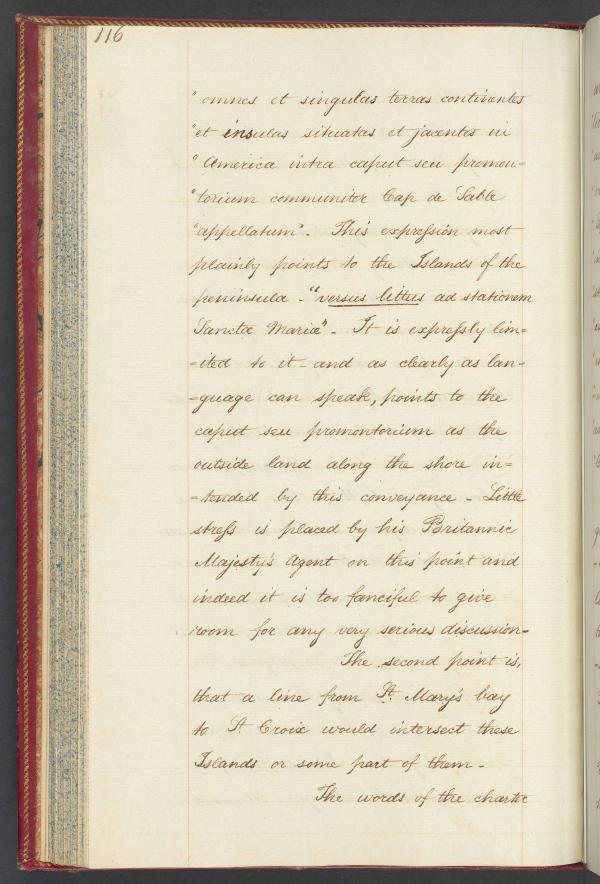 116
"omnes et singulas terras continentes
"et insulas situatas et jacentes in
"America intra caput seu promon-
"torium communiter Cap de Sable
"appellatum". This expression most
plainly points to the Islands of the
peninsula. "versus littus ad stationem
Sanctæ Mariæ". It is expressly lim-
-ited to it - and as clearly as lan-
-guage can speak, points to the
caput seu promontorium as the
outside land along the shore in=
=tended by this conveyance. Little
stress is placed by his Britannic
Majesty's Agent on this point and
indeed it is too fanciful to give
room for any very serious discussion.
The second point is,
that a line from St. Mary's bay
to St. Croix would intersect these
Islands or some part of them.
The words of the charter